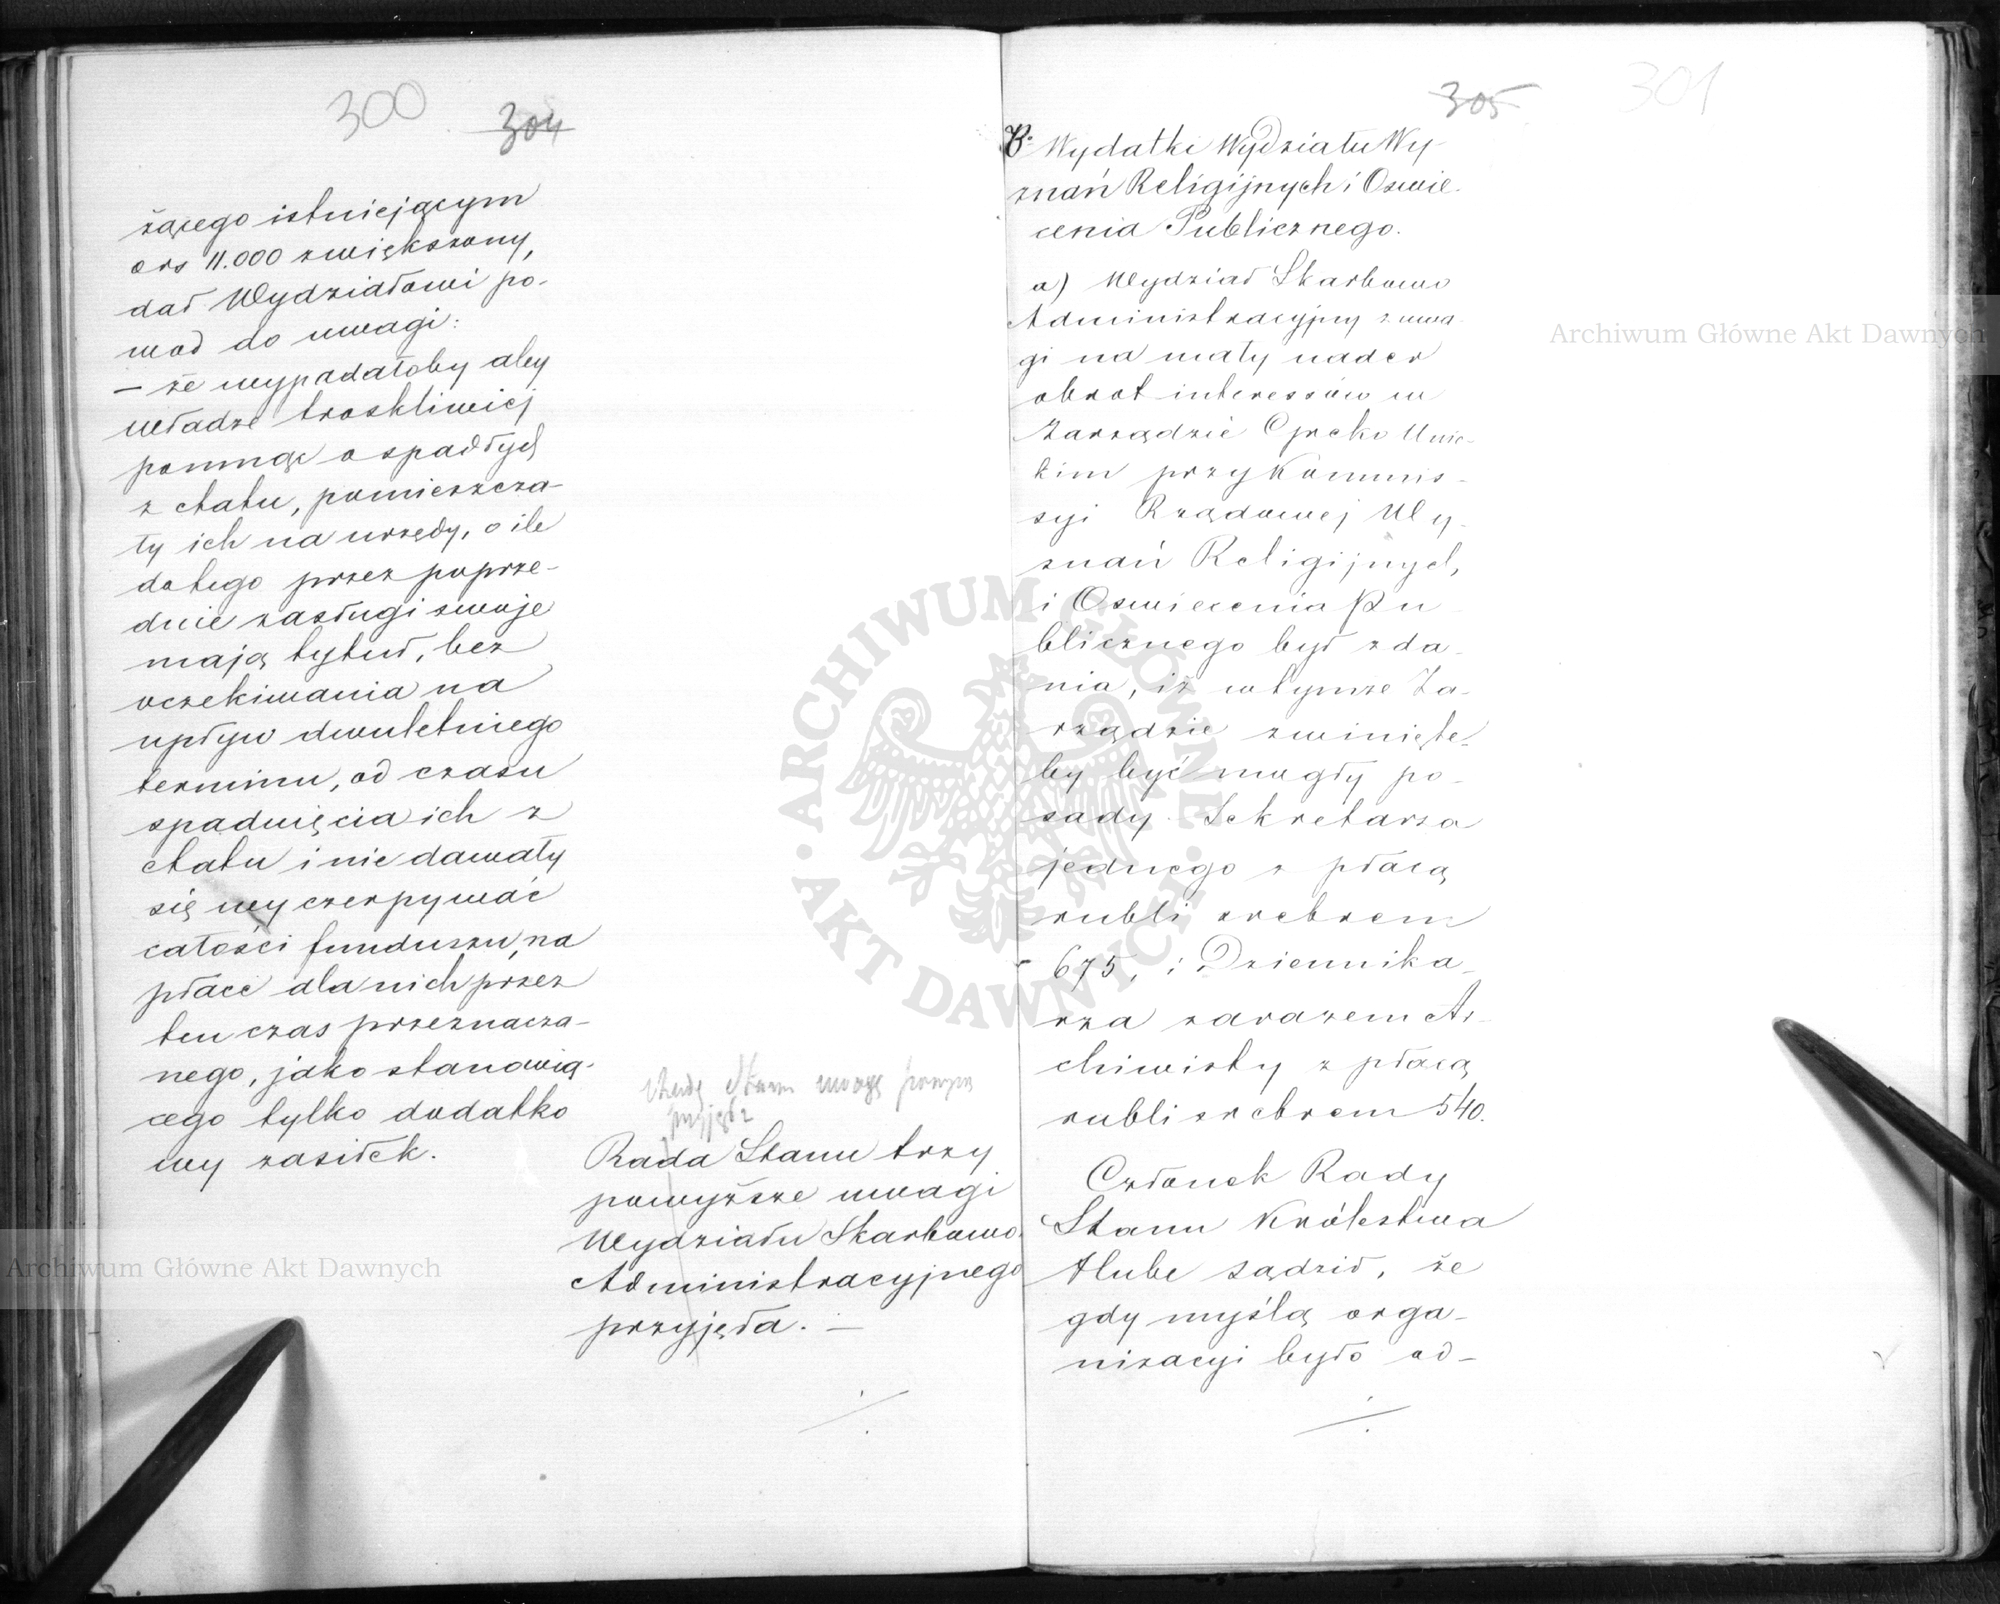 300
304
żącego istniejącym
o rs 11.000 zwiększony,
dał Wydziałowi po-
wod do uwagi:
— że wypadałoby aby
władze troskliwiej
pomnąc o spadłych
z etatu, pomieszcza-
ły ich na urzędy, o ile
do tego przez poprze-
dnie zasługi swoje
mają tytuł, bez
oczekiwania na
upływ dwuletniego
terminu, od czasu
spadnięcia ich z
etatu i nie dawały
się wyczerpywać
całości funduszu, na
płace dla nich przez
ten czas przeznacza-
nego, jako stanowią-
cego tylko dodatko
wy zasiłek.
Rada Stanu uwagę powyż
przyjęła
Rada Stanu trzy
powyższe uwagi
Wydziału Skarbowo
Administracyjnego
przyjęła. —
305
301
B. Wydatki Wydziału Wy-
znań Religijnych i Oswie-
cenia Publicznego.
a) Wydział Skarbowo
Administracyjny z uwa-
gi na mały nader
obrot interessów w
Zarządzie Greko Unic-
kim przy Kommis-
syi Rządowej Wy-
znań Religijnych,
i Oswiecenia Pu
blicznego był zda-
nia, iż w tymże Za-
rządzie zwinięte-
by być mogły po-
sady Sekretarza
jednego z płacą
rubli srebrem
675, i Dziennika-
rza zarazem Ar-
chiwisty z płacą
rubli srebrem 540.
Członek Rady
Stanu Królestwa
Hube sądził, że
gdy myślą orga-
nizacyi było od-
Archiwum Główne Akt Dawnych
Archiwum Główne Akt Dawnych
· ARCHIWUM GŁÓWNE · AKT DAWNYCH ·